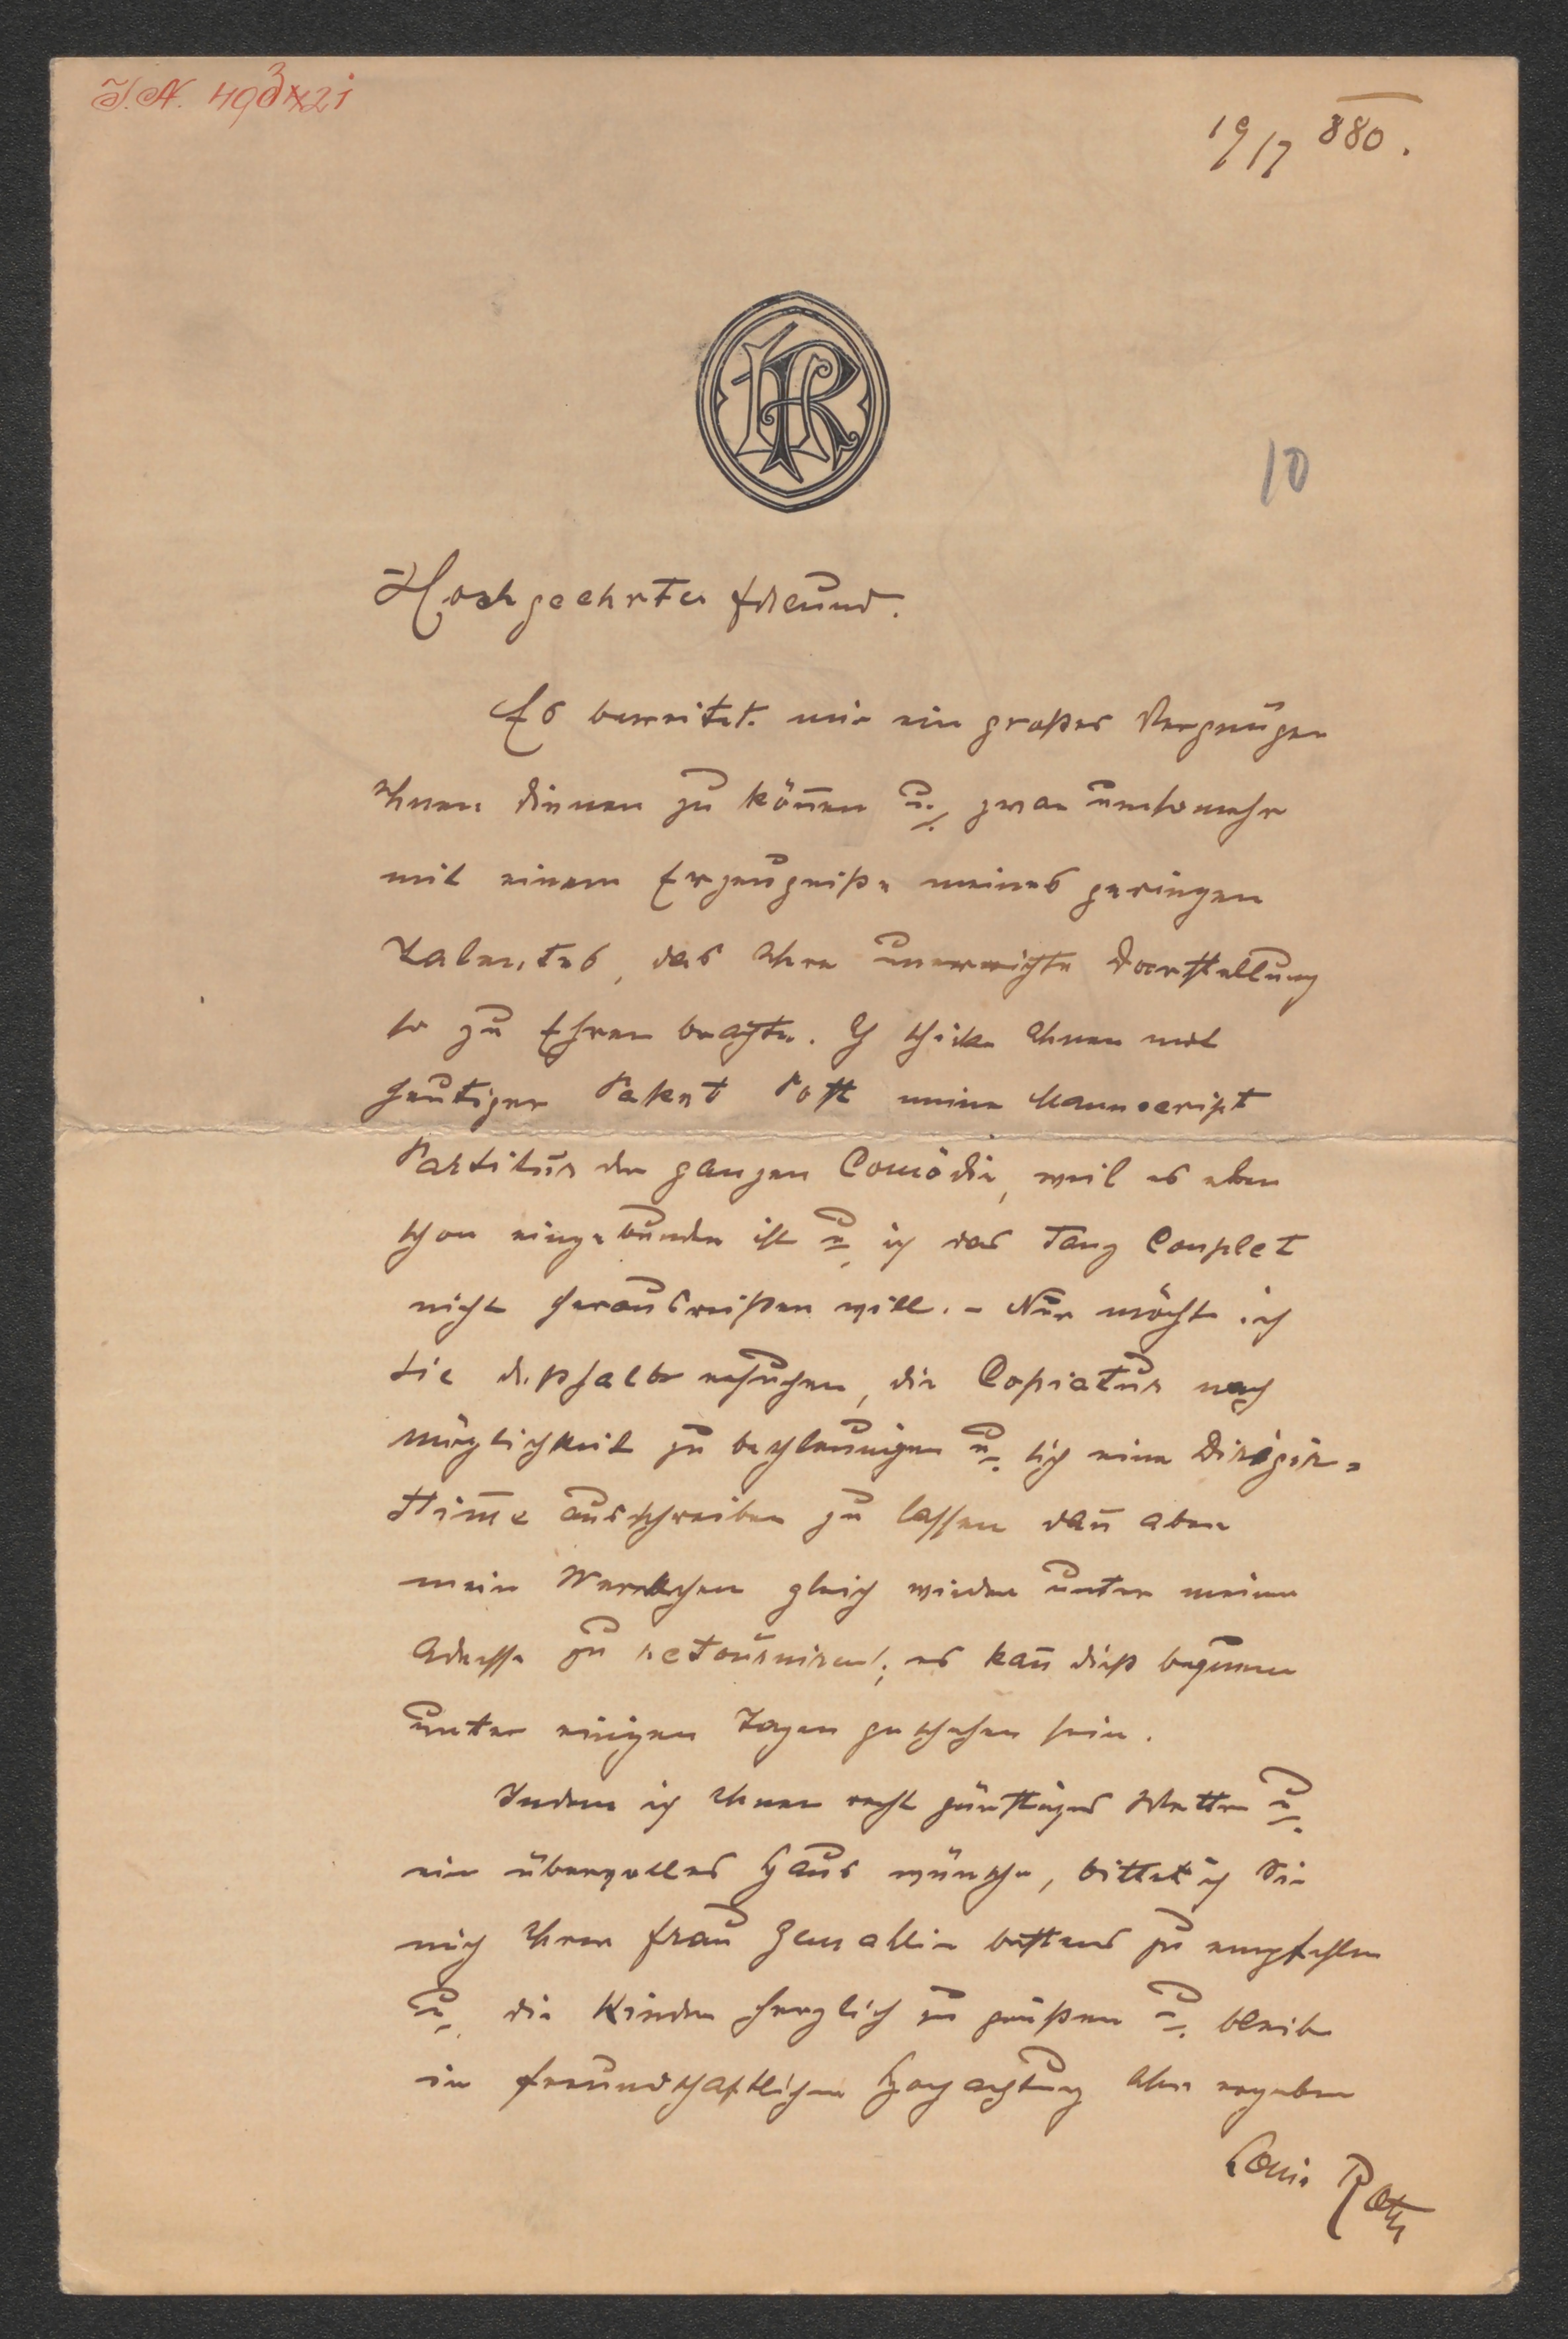 I.N. 49321
19/7 880.
LR
10
Hochgeehrter Freund.
Es bereitet mir ein großes Vergnügen
Ihnen dienen zu kön̄en u. zwar umsomehr
mit einem Erzeugniße meines geringen
Talentes, das Ihre unerreichte Darstellung
so zu Ehren brachte. Ich schicke Ihnen mit
heutiger Paket Post meine Manuscript
Partitur der ganzen Comödie, weil es eben
schon eingebunden ist u. ich das Tanz Couplet
nicht herausreißen will. – Nur möchte ich
Sie deßhalb ersuchen, die Copiatur nach
Möglichkeit zu beschleunigen u. sich eine Dirigir-
stim̄e ausschreiben zu lassen dan̄ aber
mein Werkchen gleich wieder unter meiner
Adresse zu retourniren; es kan̄ dieß bequem
unter einigen Tagen geschehen sein.
Indem ich Ihnen recht günstiges Wetter u.
ein übervolles Haus wünsche, bitte ich Sie
mich Ihrer Frau Gemalin bestens zu empfehlen
u. die Kinder herzlich zu grüßen u. bleibe
in freundschaftlicher Hochachtung Ihr ergebener
Louis Roth